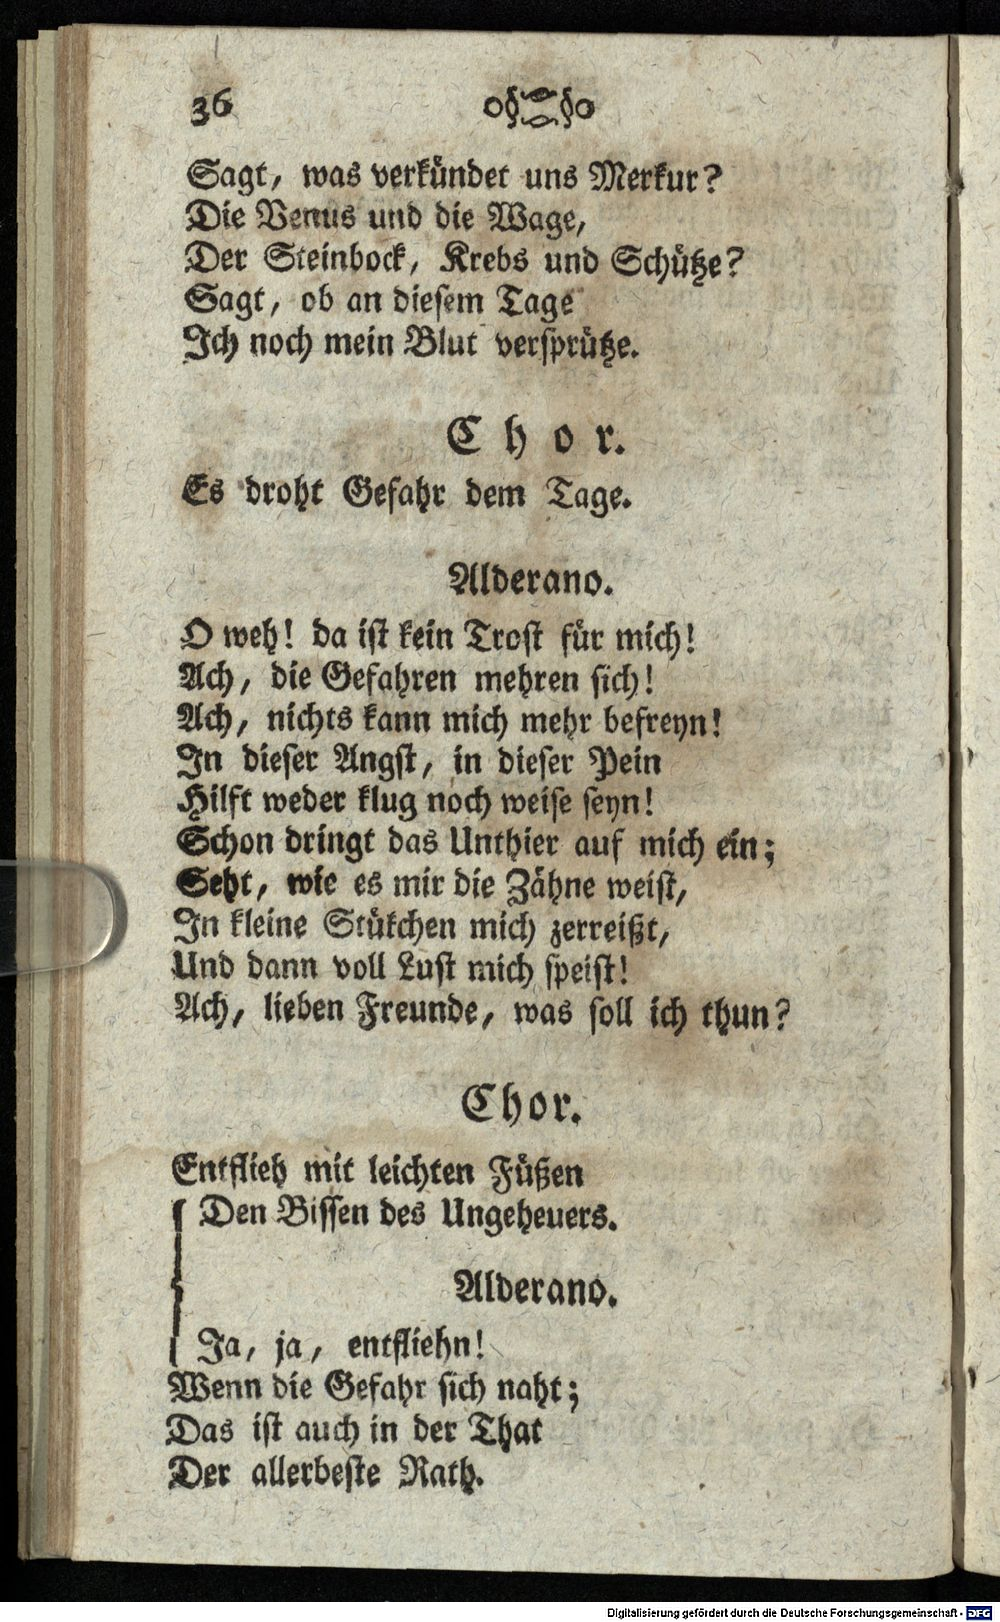 36
Sagt, was verkündet uns Merkur?
Die Venus und die Wage,
Der Steinbock, Krebs und Schütze?
Sagt, ob an diesem Tage
Ich noch mein Blut versprütze.
Chor.
Es droht Gefahr dem Tage.
Alderano.
O weh! da ist kein Trost für mich!
Ach, die Gefahren mehren sich!
Ach, nichts kann mich mehr befreyn!
In dieser Angst, in dieser Pein
Hilft weder klug noch weise seyn!
Schon dringt das Unthier auf mich ein;
Seht, wie es mir die Zähne weist,
In kleine Stükchen mich zerreißt,
Und dann voll Lust mich speist!
Ach, lieben Freunde, was soll ich thun?
Chor.
Entflieh mit leichten Füßen
Den Bissen des Ungeheuers.
Alderano.
Ja, ja, entfliehn!
Wenn die Gefahr sich naht;
Das ist auch in der That
Der allerbeste Rath.
Digitalisierung gefördert durch die Deutsche Forschungsgemeinschaft - DFG